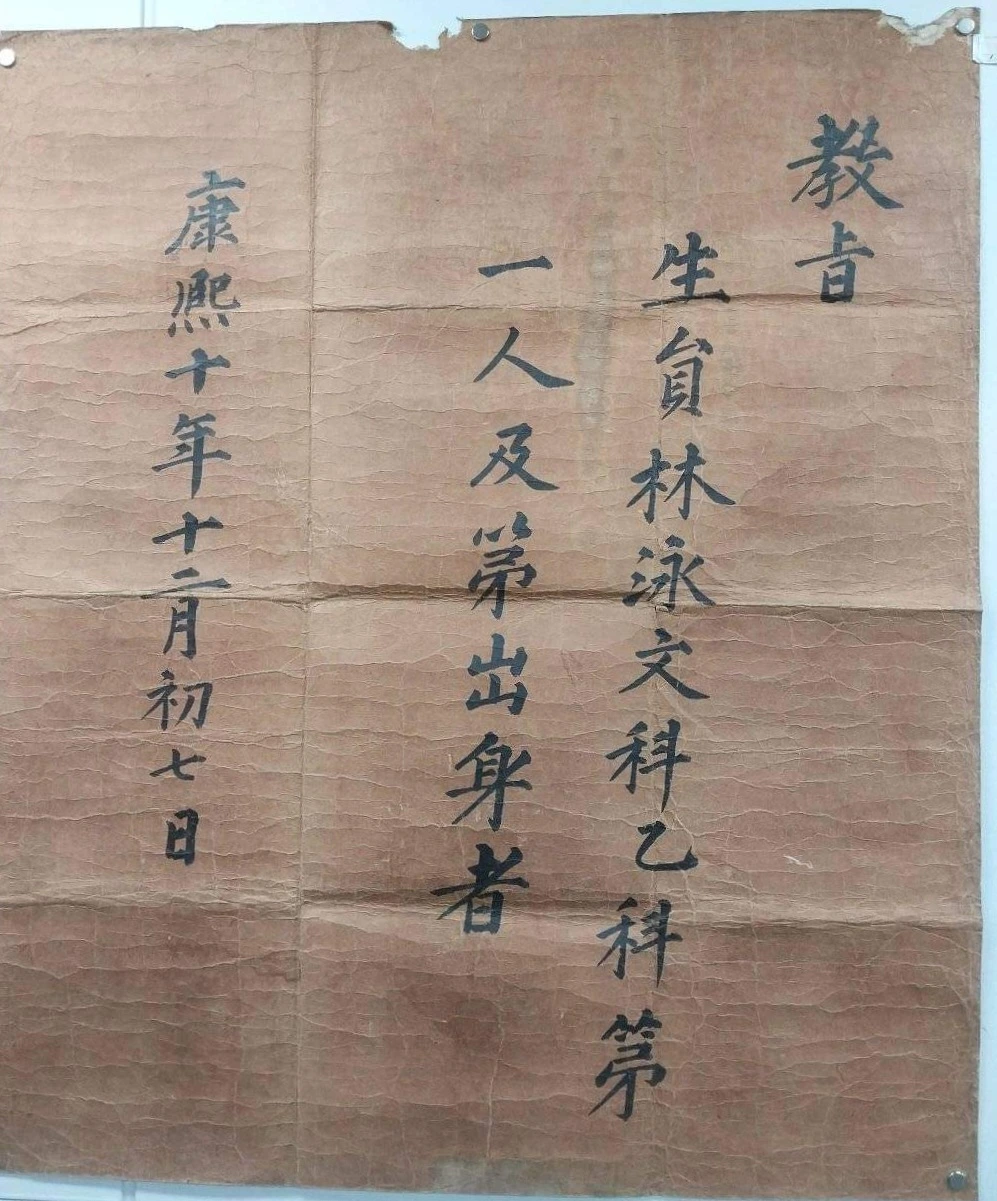 教旨
生員林泳文科乙科第
一人及第出身者
康熙十年十二月初七日